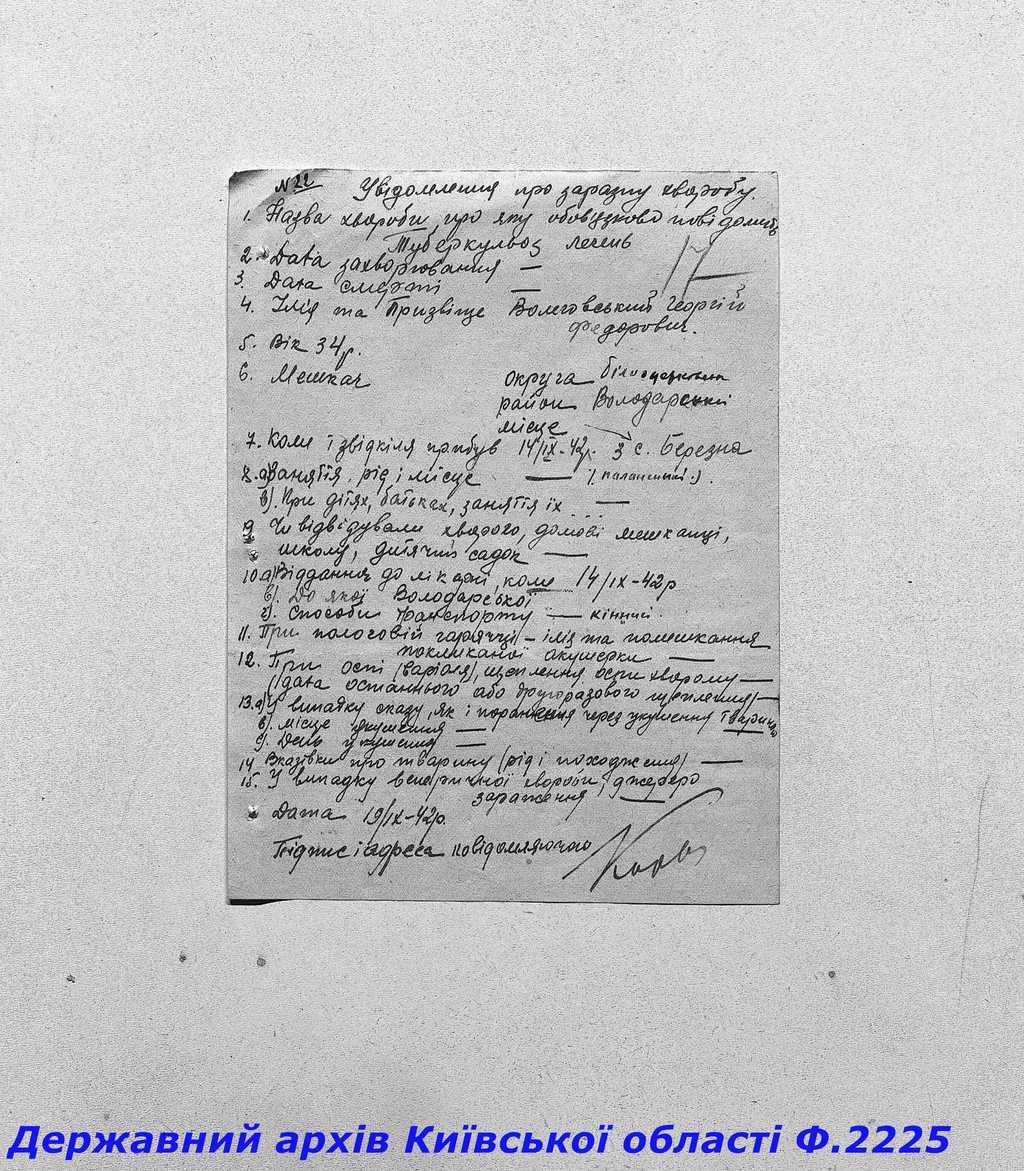 № 22 Увідомлення про заразну хворобу.
1. Назва хвороби, про яку обовязково повідомить
Туберкульоз легень
17
2. Дата захворювання —
3. Дата смерти —
4. Імя та Призвіще Георгій
Федорович.
5. Вік 34 р.
6. Мешкач округа
район Володарський
місце
7. Коли і звідкіля прибув 14/IX-42р. з с. Березна
8. а) Заняття, рід і місце —
в). При дітях, батьках, заняття їх... —
9. Чи відвідували хворого, домові мешканці,
школу, дитячий садок —
10. а) Віддання до лікарні, коли 14/IX-42р
в). До якої Володарської
г). Способи транспорту — кінний.
11. При пологовій гарячці — імя та помешкання
покликаної акушерки —
12. При оспі (варіоля), щеплення оспи хворому —
(дата останнього або другоразового щеплення) —
13. а) У випадку сказу, як і поранення через укушення тварини
в). місце укушення —
г). День укушення —
14. Вказівки про тварину (рід і походження) —
15. У випадку венеричної хвороби, джерело
зараження —
Дата 19/IX-42р.
Підпис і адреса повідомляючого
Державний архів Київської області Ф.2225